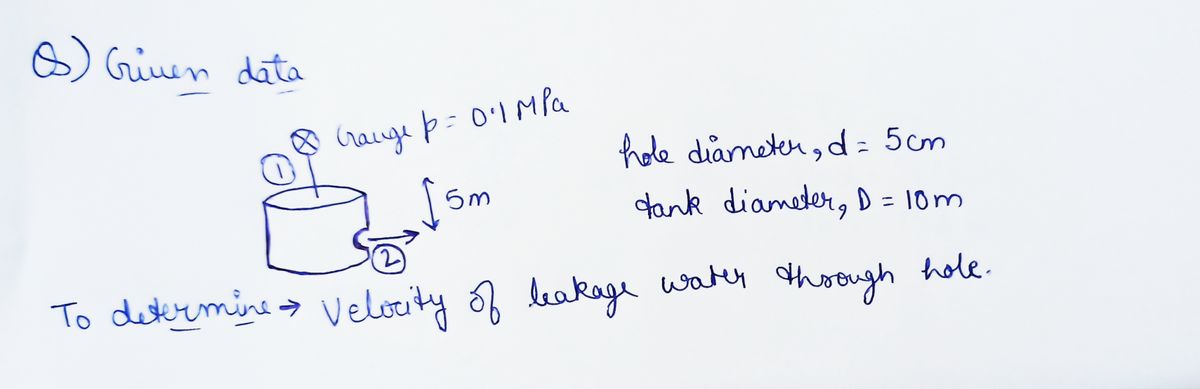 Q) Given data
① Gauge p = 0.1 MPa
5m
②
hole diameter, d = 5cm
tank diameter, D = 10m
To determine → Velocity of leakage water through hole.